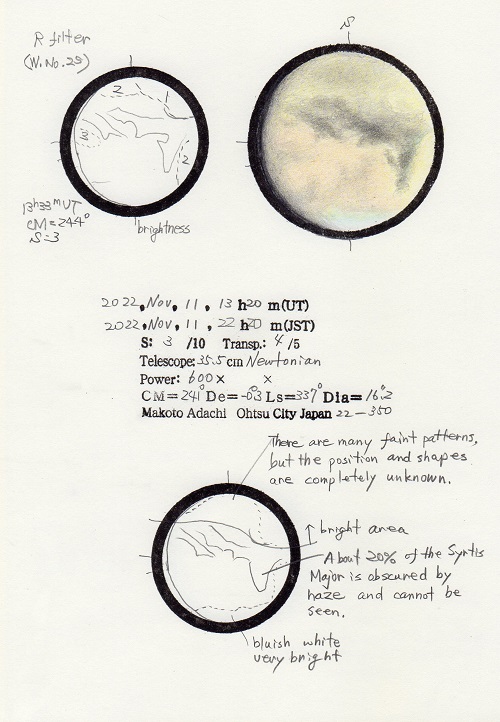 R filter
(W.No.25)
S
2
1
3
2
13h33m UT
CM=244°
S=3
brightness
2022, Nov, 11, 13 h20 m(UT)
2022, Nov, 11, 22 h20 m(JST)
S: 3 /10 Transp.: 4 /5
Telescope: 35.5 cm Newtonian
Power: 600× ×
CM=241° De=-0.3 Ls=337° Dia=16.2
Makoto Adachi Ohtsu City Japan 22-350
There are many faint patterns,
but the position and shapes
are completely unknown.
bright area
About 20% of the Syrtis
Major is obscured by
haze and cannot be
seen.
bluish white
very bright